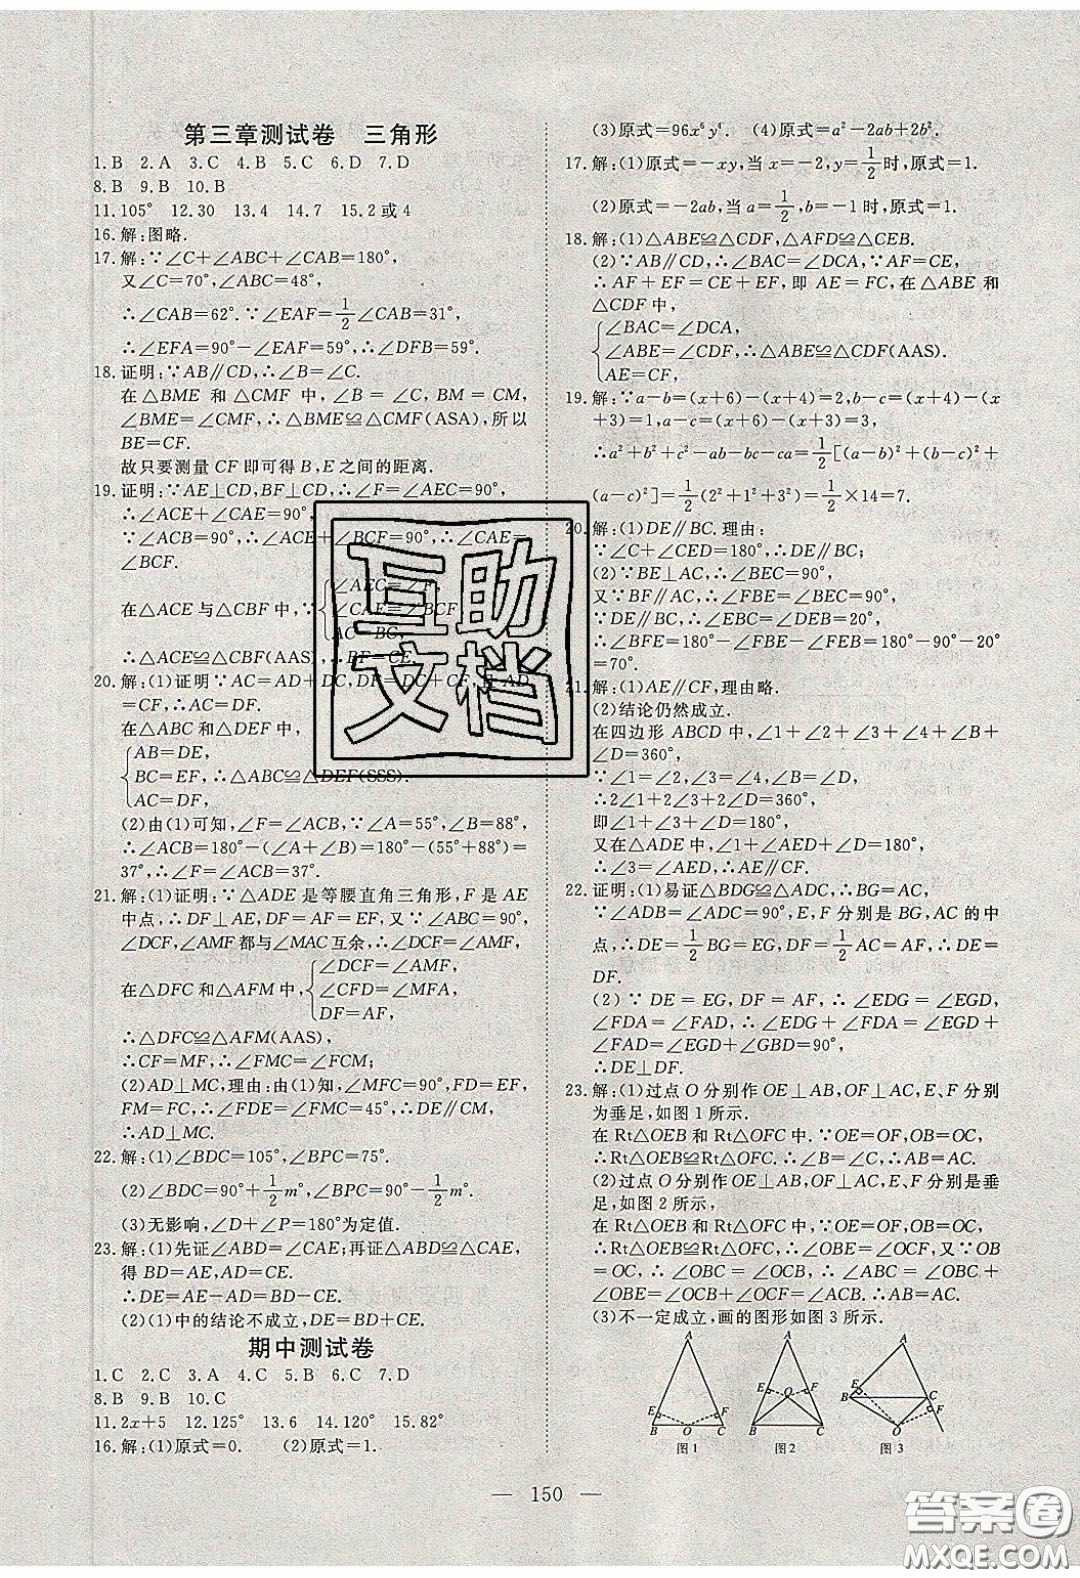 第三章测试卷 三角形
1.B 2.A 3.C 4.B 5.C 6.D 7.D
8.B 9.B 10.B
11.105° 12.30 13.4 14.7 15.2或4
16.解:图略.
17.解:∵∠C+∠ABC+∠CAB=180°,
又∠C=70°,∠ABC=48°,
∴∠CAB=62°.∵∠EAF=1/2∠CAB=31°,
∴∠EFA=90°-∠EAF=59°,∴∠DFB=59°.
18.证明:∵AB∥CD,∴∠B=∠C.
在△BME 和△CMF 中,∠B=∠C,BM=CM,
∠BME=∠CMF,∴△BME≌△CMF(ASA),所以
BE=CF.
故只要测量CF即可得B,E之间的距离.
19.证明:∵AE⊥CD,BF⊥CD,∴∠F=∠AEC=90°,
∴∠ACE+∠CAE=90°,
∵∠ACB=90°,∴∠ACE+∠BCF=90°,∴∠CAE=
∠BCF.
在△ACE与△CBF中,∵{∠AEC=∠F,
∠CAE=∠BCF
AC=BG,
∴△ACE≌△CBF(AAS),∴BF=CE.
20.解:(1)证明∵AC=AD+DC,DF=DC+CF,且AD
=CF,∴AC=DF.
在△ABC和△DEF中,
{AB=DE,
BC=EF,∴△ABC≌△DEF(SSS).
AC=DF,
(2)由(1)可知,∠F=∠ACB,∵∠A=55°,∠B=88°,
∴∠ACB=180°-(∠A+∠B)=180°-(55°+88°)=
37°,∴∠F=∠ACB=37°.
21.解:(1)证明:∵△ADE是等腰直角三角形,F是AE
中点,∴DF⊥AE,DF=AF=EF,又∵∠ABC=90°,
∠DCF,∠AMF都与∠MAC互余,∴∠DCF=∠AMF,
在△DFC和△AFM中,{∠DCF=∠AMF,
∠CFD=∠MFA,
DF=AF,
∴△DFC≌△AFM(AAS),
∴CF=MF,∴∠FMC=∠FCM;
(2)AD⊥MC,理由:由(1)知,∠MFC=90°,FD=EF,
FM=FC,∴∠FDE=∠FMC=45°,∴DE∥CM,
∴AD⊥MC.
22.解:(1)∠BDC=105°,∠BPC=75°.
(2)∠BDC=90°+1/2m°,∠BPC=90°-1/2m°.
(3)无影响,∠D+∠P=180°为定值.
23.解:(1)先证∠ABD=∠CAE;再证△ABD≌△CAE,
得BD=AE,AD=CE.
∴DE=AE-AD=BD-CE.
(2)(1)中的结论不成立,DE=BD+CE.
期中测试卷
1.C 2.C 3.A 4.C 5.B 6.C 7.D
8.B 9.B 10.C
11.2x+5 12.125° 13.6 14.120° 15.82°
16.解:(1)原式=0. (2)原式=1.
(3)原式=96x⁶y⁴. (4)原式=a²-2ab+2b².
17.解:(1)原式=-xy,当x=-2,y=1/2时,原式=1.
(2)原式=-2ab,当a=1/2,b=-1时,原式=1.
18.解:(1)△ABE≌△CDF,△AFD≌△CEB.
(2)∵AB∥CD,∴∠BAC=∠DCA,∵AF=CE,
∴AF+EF=CE+EF,即AE=FC,在△ABE和
△CDF中,
{∠BAC=∠DCA,
∠ABE=∠CDF,∴△ABE≌△CDF(AAS).
AE=CF,
19.解:∵a-b=(x+6)-(x+4)=2,b-c=(x+4)-(x
+3)=1,a-c=(x+6)-(x+3)=3,
∴a²+b²+c²-ab-bc-ca=1/2[(a-b)²+(b-c)²+
(a-c)²]=1/2(2²+1²+3²)=1/2×14=7.
20.解:(1)DE∥BC.理由:
∵∠C+∠CED=180°,∴DE∥BC;
(2)∵BE⊥AC,∴∠BEC=90°,
又∵BF∥AC,∴∠FBE=∠BEC=90°,
∵DE∥BC,∴∠EBC=∠DEB=20°,
∴∠BFE=180°-∠FBE-∠FEB=180°-90°-20°
=70°.
21.解:(1)AE∥CF,理由略.
(2)结论仍然成立.
在四边形ABCD中,∠1+∠2+∠3+∠4+∠B+
∠D=360°,
∵∠1=∠2,∠3=∠4,∠B=∠D,
∴2∠1+2∠3+2∠D=360°,
即∠1+∠3+∠D=180°,
又在△ADE中,∠1+∠AED+∠D=180°,
∴∠3=∠AED,∴AE∥CF.
22.证明:(1)易证△BDG≌△ADC,∴BG=AC,
∵∠ADB=∠ADC=90°,E,F分别是BG,AC的中
点,∴DE=1/2BG=EG,DF=1/2AC=AF,∴DE=
DF.
(2)∵DE=EG,DF=AF,∴∠EDG=∠EGD,
∠FDA=∠FAD,∴∠EDG+∠FDA=∠EGD+
∠FAD=∠EGD+∠GBD=90°,
∴DE⊥DF.
23.解:(1)过点O分别作OE⊥AB,OF⊥AC,E、F分别
为垂足,如图1所示.
在Rt△OEB和Rt△OFC中.∵OE=OF,OB=OC,
∴Rt△OEB≌Rt△OFC.∴∠B=∠C,∴AB=AC.
(2)过点O分别作OE⊥AB,OF⊥AC,E、F分别是垂
足,如图2所示,
在Rt△OEB和Rt△OFC中,∵OE=OF,OB=OC,
∴Rt△OEB≌Rt△OFC,∴∠OBE=∠OCF,又∵OB
=OC,∴∠OBC=∠OCB,∴∠ABC=∠OBC+
∠OBE=∠OCB+∠OCF=∠ACB,∴AB=AC.
(3)不一定成立,画的图形如图3所示.
A E F B O C 图1
A E O F B C 图2
A E B C F O 图3
— 150 —
互助
文档
答案圈
MXQE.COM